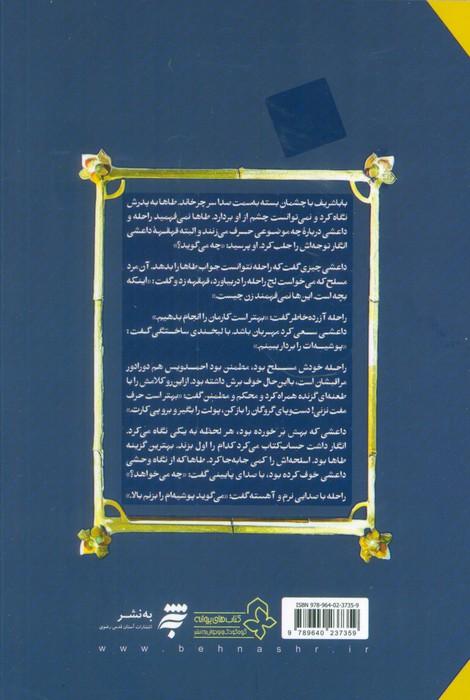 باباشریف با چشمان بسته به‌سمت صدا سر چرخاند. طاها به پدرش
نگاه کرد و نمی‌توانست چشم از او بردارد. طاها نمی‌فهمید راحله و
داعشی درباره چه موضوعی حرف می‌زنند و البته قهقهه داعشی
انگار توجه‌اش را جلب کرد. او پرسید: «چه می‌گوید؟»
داعشی چیزی گفت که راحله نتوانست جواب طاها را بدهد. آن مرد
مسلح که می‌خواست لج راحله را دربیاورد، قهقهه زد و گفت: «اینکه
بچه است. این‌ها نمی‌فهمند زن چیست.»
راحله آزرده‌خاطر گفت: «بهتر است کارمان را انجام بدهیم.»
داعشی سعی کرد مهربان باشد. با لبخندی ساختگی گفت:
«پوشیه‌ات را بردار ببینم.»
راحله خودش مسلح بود، مطمئن بود احمدلویس هم دورادور
مراقبشان است، بااین‌حال خوف برش داشته بود. ازاین‌رو کلامش را با
طعنه‌ای گزنده همراه کرد و محکم و مطمئن گفت: «بهتر است حرف
مفت نزنی! دست‌وپای گروگان را باز کن، پولت را بگیر و برو پی کارت.»
داعشی که بهش بر خورده بود، هر لحظه به یکی نگاه می‌کرد.
انگار داشت حساب‌کتاب می‌کرد کدام را اول بزند. بهترین گزینه
طاها بود. اسلحه‌اش را کمی جابه‌جا کرد. طاها که از نگاه وحشی
داعشی خوف کرده بود، با صدای پایینی گفت: «چه می‌خواهد؟»
راحله با صدایی نرم و آهسته گفت: «می‌گوید پوشیه‌ام را بزنم بالا.»
به نشر
انتشارات آستان قدس رضوی
کتاب‌های پروانه
گروه کودک و نوجوان به‌نشر
ISBN 978-964-02-3735-9
9 789640 237359
www.behnashr.ir